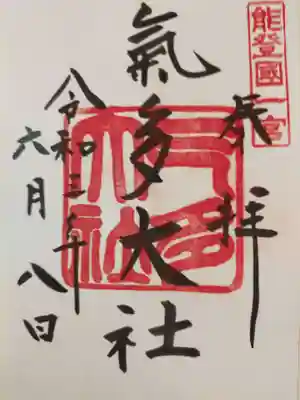 能登國一宮
奉拝
氣多大社
令和三年
六月八日